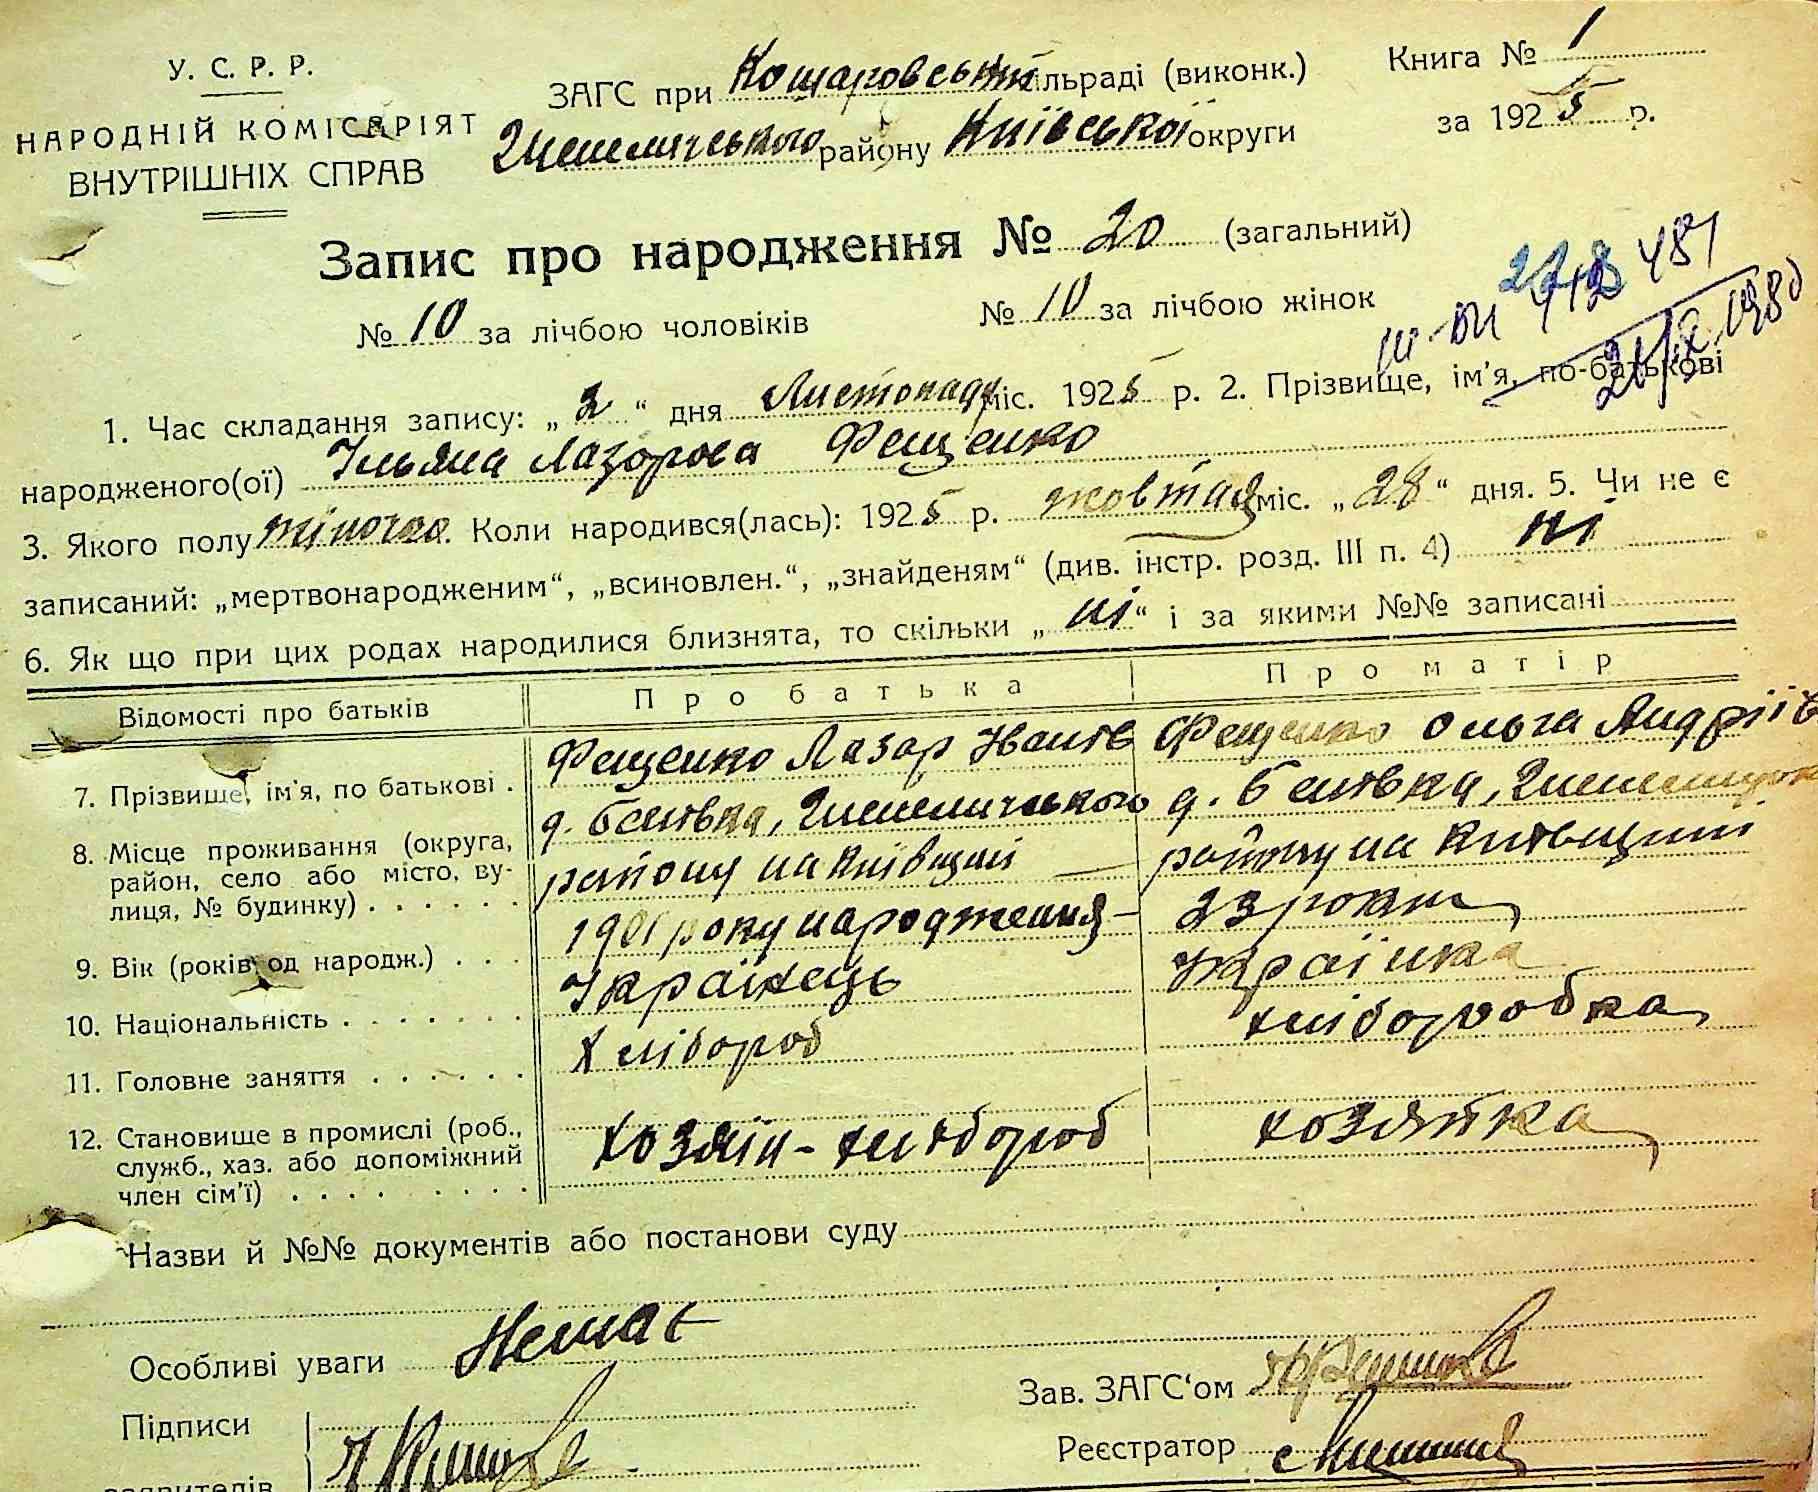 У. С. Р. Р.
НАРОДНІЙ КОМІСАРІЯТ
ВНУТРІШНІХ СПРАВ
ЗАГС при Кошаровській сільраді (виконк.)
Шепеличського району Київської округи
Книга № 1
за 1925 р.
Запис про народження № 20 (загальний)
№ 10 за лічбою чоловіків № 10 за лічбою жінок
1. Час складання запису: „2“ дня Листопаду міс. 1925 р. 2. Прізвище, ім'я, по-батькові
народженого(ої) Ульяна Лазорова Фещенко
3. Якого полу жіночка. Коли народився(лась): 1925 р. жовтня міс. „28“ дня. 5. Чи не є
записаний: „мертвонародженим“, „всиновлен.“, „знайденям“ (див. інстр. розд. III п. 4) ні
6. Як що при цих родах народилися близнята, то скільки „ні“ і за якими №№ записані
Відомості про батьків Про батька Про матір
7. Прізвище, ім'я, по батькові . Фещенко Лазар Іванів Фещенко Ольга Андріїв
8. Місце проживання (округа, район, село або місто, вулиця, № будинку) д. Бенівка, Шепеличського району на Київщині д. Бенівка, району на Київщині
9. Вік (років од народж.) . . . 1901 року народження 23 роки
10. Національність Українець Українка
11. Головне заняття Хлібороб хліборобка
12. Становище в промислі (роб., служб., хаз. або допоміжний член сім'ї) хозяїн-хлібороб хозяйка
Назви й №№ документів або постанови суду
Особливі уваги Немає
Зав. ЗАГС'ом
Підписи
Реєстратор
заявителів